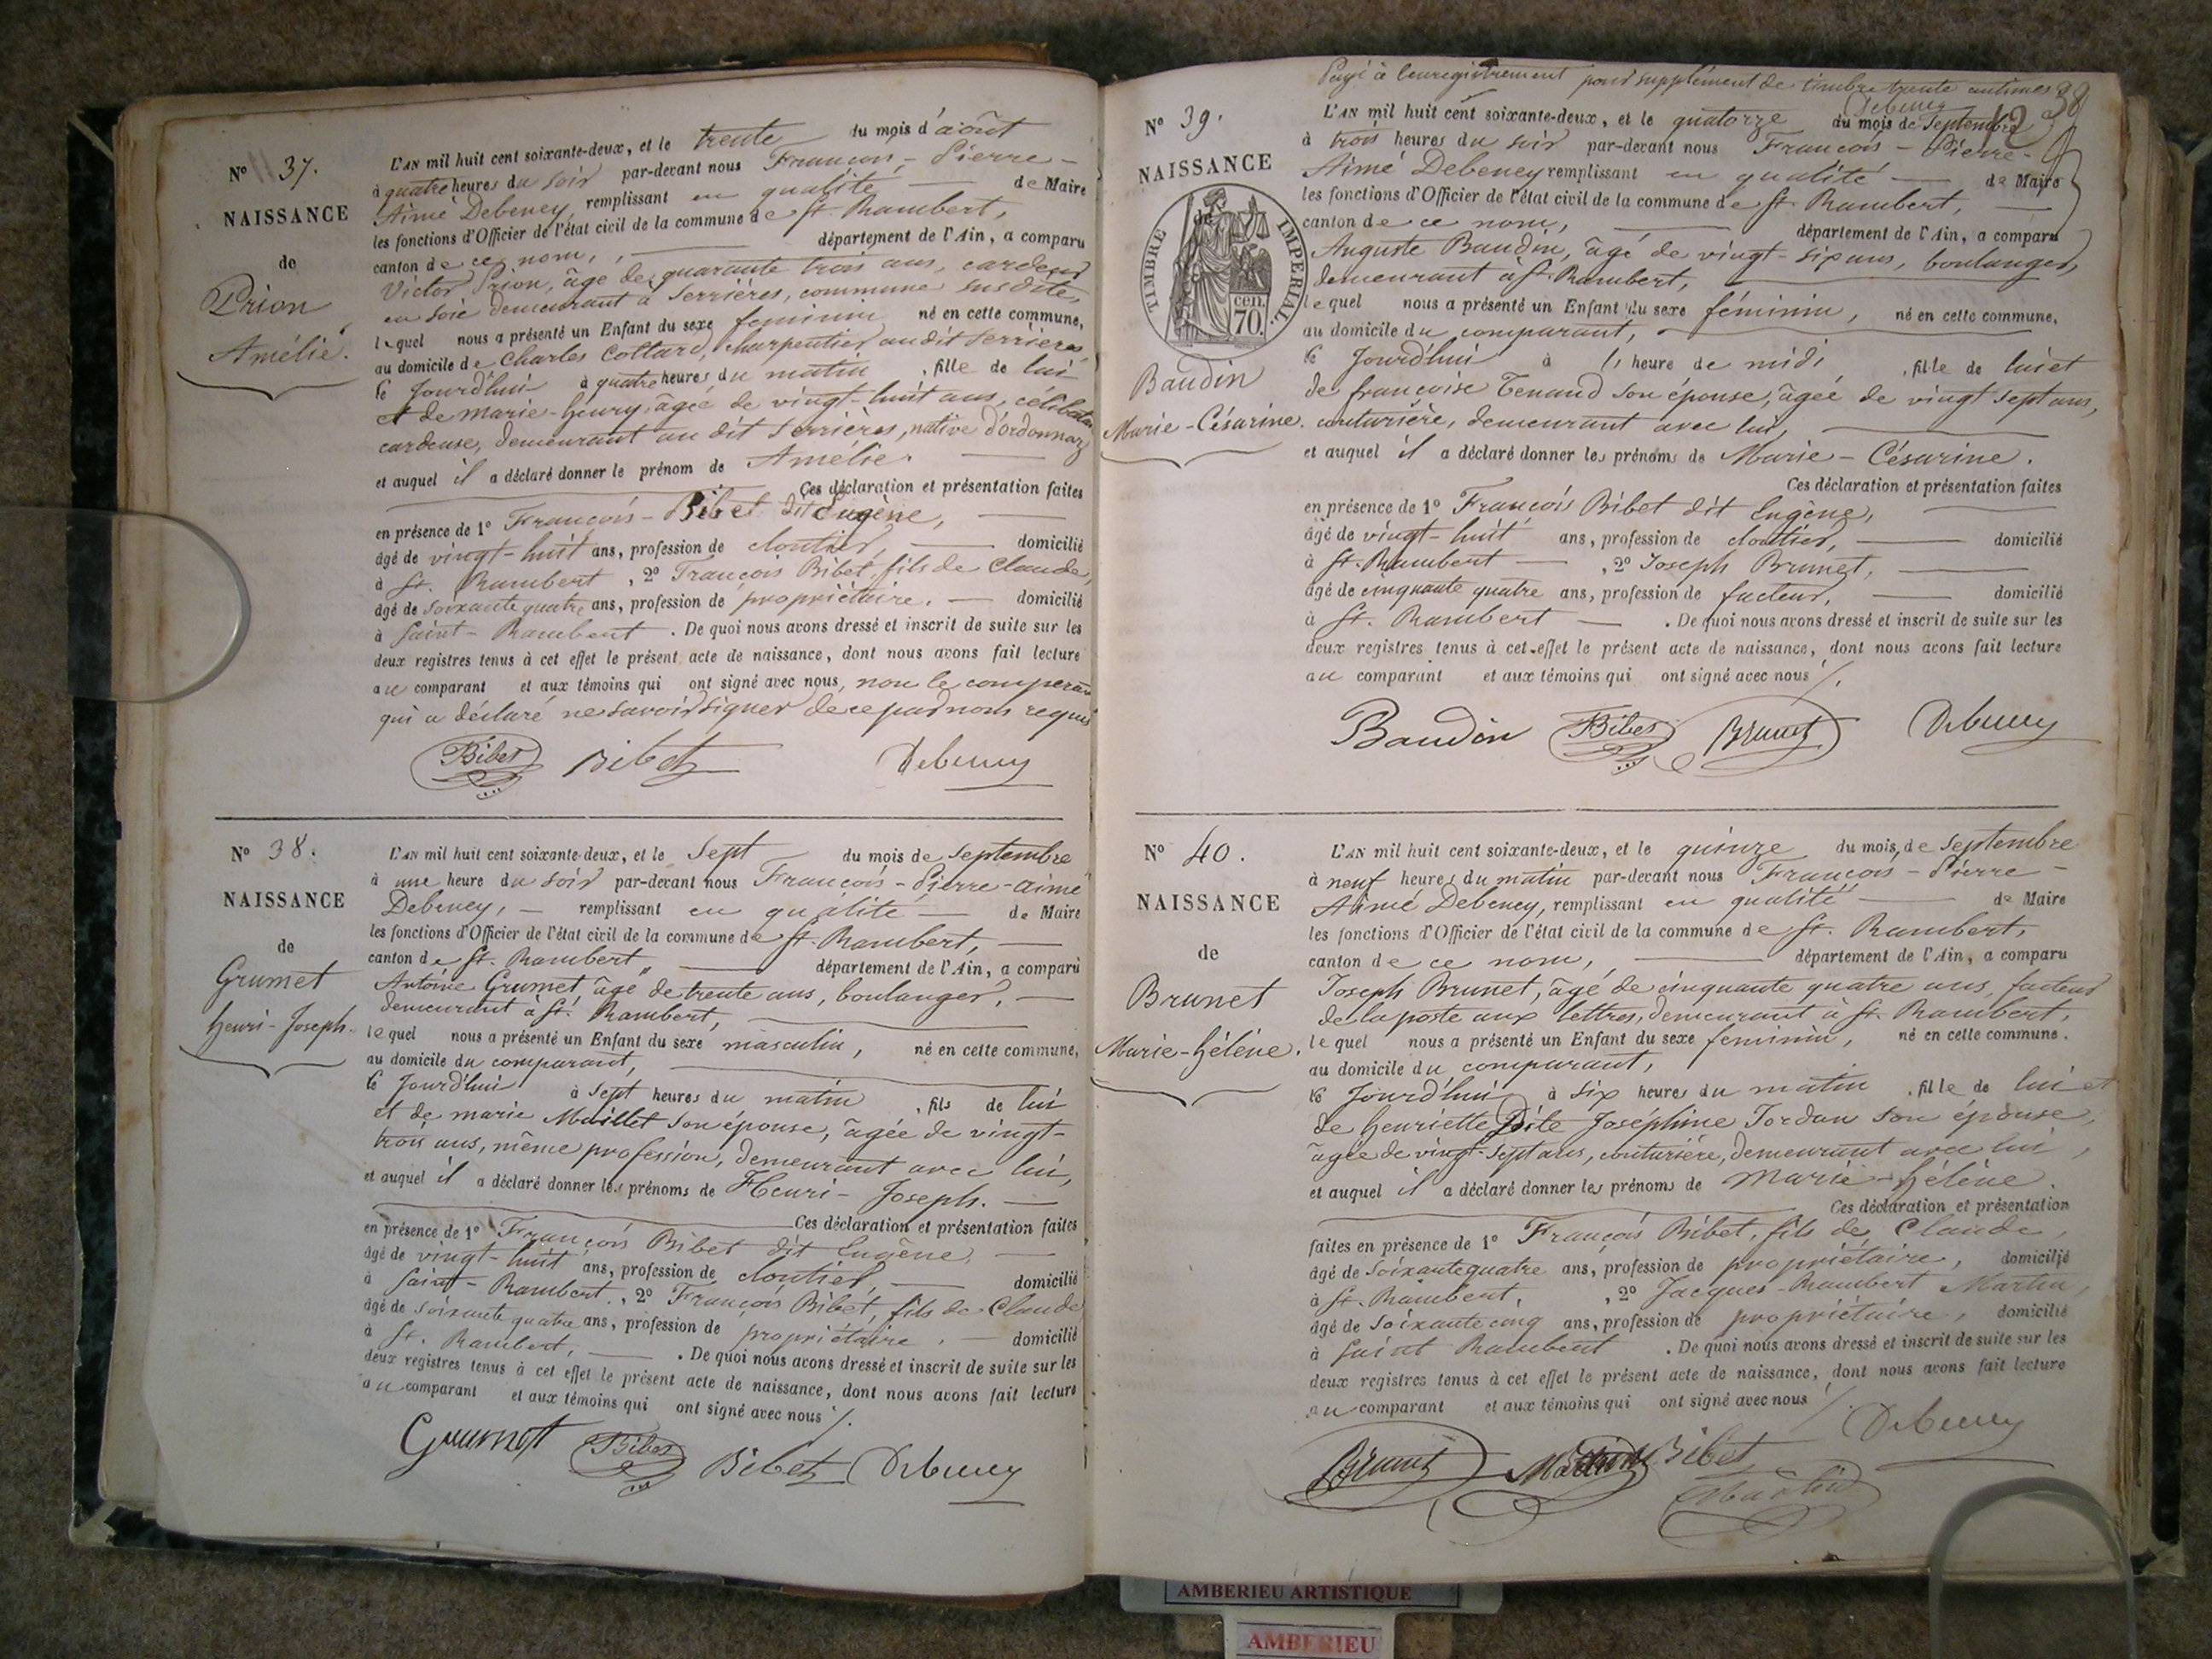 N° 37.
NAISSANCE
de
Prion
Amélie.
L'AN mil huit cent soixante-deux, et le trente du mois d'août
à quatre heures du soir par-devant nous François-Pierre-
Aimé Debeney remplissant en qualité de Maire
les fonctions d'Officier de l'état civil de la commune de St. Rambert,
canton de ce nom, département de l'Ain, a comparu
Victor Prion, âgé de quarante trois ans, cardeur
en soie demeurant à Serrières, commune susdite,
lequel nous a présenté un Enfant du sexe feminin né en cette commune,
au domicile de Charles Cottard, charpentier au dit Serrières,
le Jourd'hui à quatre heures du matin, fille de lui
et de marie-henry, âgée de vingt-huit ans, célibataire
cardeuse, demeurant au dit Serrières, native d'ordonnaz
et auquel il a déclaré donner le prénom de Amélie.
Ces déclaration et présentation faites
en présence de 1° François-Bibet dit Eugène,
âgé de vingt-huit ans, profession de cloutier, domicilié
à St. Rambert, 2° François Bibet, fils de Claude,
âgé de soixante quatre ans, profession de propriétaire. domicilié
à Saint-Rambert. De quoi nous avons dressé et inscrit de suite sur les
deux registres tenus à cet effet le présent acte de naissance, dont nous avons fait lecture
au comparant et aux témoins qui ont signé avec nous, non le comparant
qui a déclaré ne savoir signer de ce par nous requis
Bibet Bibet Debeney
N° 38.
NAISSANCE
de
Grumet
henri-Joseph.
L'AN mil huit cent soixante-deux, et le Sept du mois de Septembre
à une heure du soir par-devant nous François-Pierre-aimé
Debeney, remplissant en qualité de Maire
les fonctions d'Officier de l'état civil de la commune de St. Rambert,
canton de St. Rambert département de l'Ain, a comparu
Antoine Grumet âgé de trente ans, boulanger,
demeurant à St. Rambert,
lequel nous a présenté un Enfant du sexe masculin, né en cette commune,
au domicile du comparant,
le Jourd'hui à Sept heures du matin, fils de lui
et de marie Maillet son épouse, âgée de vingt-
trois ans, même profession, demeurant avec lui,
et auquel il a déclaré donner les prénoms de Henri-Joseph.
Ces déclaration et présentation faites
en présence de 1° François Bibet dit Eugène,
âgé de vingt-huit ans, profession de cloutier, domicilié
à Saint-Rambert, 2° François Bibet, fils de Claude
âgé de soixante quatre ans, profession de propriétaire, domicilié
à St. Rambert, . De quoi nous avons dressé et inscrit de suite sur les
deux registres tenus à cet effet le présent acte de naissance, dont nous avons fait lecture
au comparant et aux témoins qui ont signé avec nous
Grumet Bibet Bibet Debeney
Payé à l'enregistrement pour supplément de timbre trente centimes
Debeney
38
N° 39.
NAISSANCE
de
TIMBRE IMPERIAL
cen.
70.
Baudin
Marie-Césarine.
L'AN mil huit cent soixante-deux, et le quatorze du mois de Septembre
à trois heures du soir par-devant nous François-Pierre-
Aimé Debeney remplissant en qualité de Maire
les fonctions d'Officier de l'état civil de la commune de St. Rambert,
canton de ce nom, département de l'Ain, a comparu
Auguste Baudin, âgé de vingt-six ans, boulanger,
demeurant à St. Rambert,
lequel nous a présenté un Enfant du sexe féminin, né en cette commune,
au domicile du comparant,
le Jourd'hui à l'heure de midi, fille de lui et
de françoise Tenand son épouse, âgée de vingt sept ans,
couturière, demeurant avec lui,
et auquel il a déclaré donner les prénoms de Marie-Césarine.
Ces déclaration et présentation faites
en présence de 1° François Bibet dit Eugène,
âgé de vingt-huit ans, profession de cloutier, domicilié
à St. Rambert, 2° Joseph Brunet,
âgé de cinquante quatre ans, profession de facteur, domicilié
à St. Rambert. De quoi nous avons dressé et inscrit de suite sur les
deux registres tenus à cet effet le présent acte de naissance, dont nous avons fait lecture
au comparant et aux témoins qui ont signé avec nous
Baudin Bibet Brunet Debeney
N° 40.
NAISSANCE
de
Brunet
Marie-hélène.
L'AN mil huit cent soixante-deux, et le quinze du mois de Septembre
à neuf heures du matin par-devant nous François-Pierre-
Aimé Debeney, remplissant en qualité de Maire
les fonctions d'Officier de l'état civil de la commune de St. Rambert,
canton de ce nom, département de l'Ain, a comparu
Joseph Brunet, âgé de cinquante quatre ans, facteur
de la poste aux lettres, demeurant à St. Rambert,
lequel nous a présenté un Enfant du sexe feminin, né en cette commune.
au domicile du comparant,
le Jourd'hui à six heures du matin, fille de lui et
de henriette Dite Joséphine Jordan son épouse,
âgée de vingt-sept ans, couturière, demeurant avec lui,
et auquel il a déclaré donner les prénoms de Marie-hélène.
Ces déclaration et présentation
faites en présence de 1° François Bibet, fils de Claude,
âgé de soixante quatre ans, profession de propriétaire, domicilié
à St. Rambert, 2° Jacques-Rambert Martin,
âgé de soixante cinq ans, profession de propriétaire, domicilié
à Saint Rambert. De quoi nous avons dressé et inscrit de suite sur les
deux registres tenus à cet effet le présent acte de naissance, dont nous avons fait lecture
au comparant et aux témoins qui ont signé avec nous
Brunet Bibet Debeney
Martin
AMBERIEU ARTISTIQUE
AMBERIEU